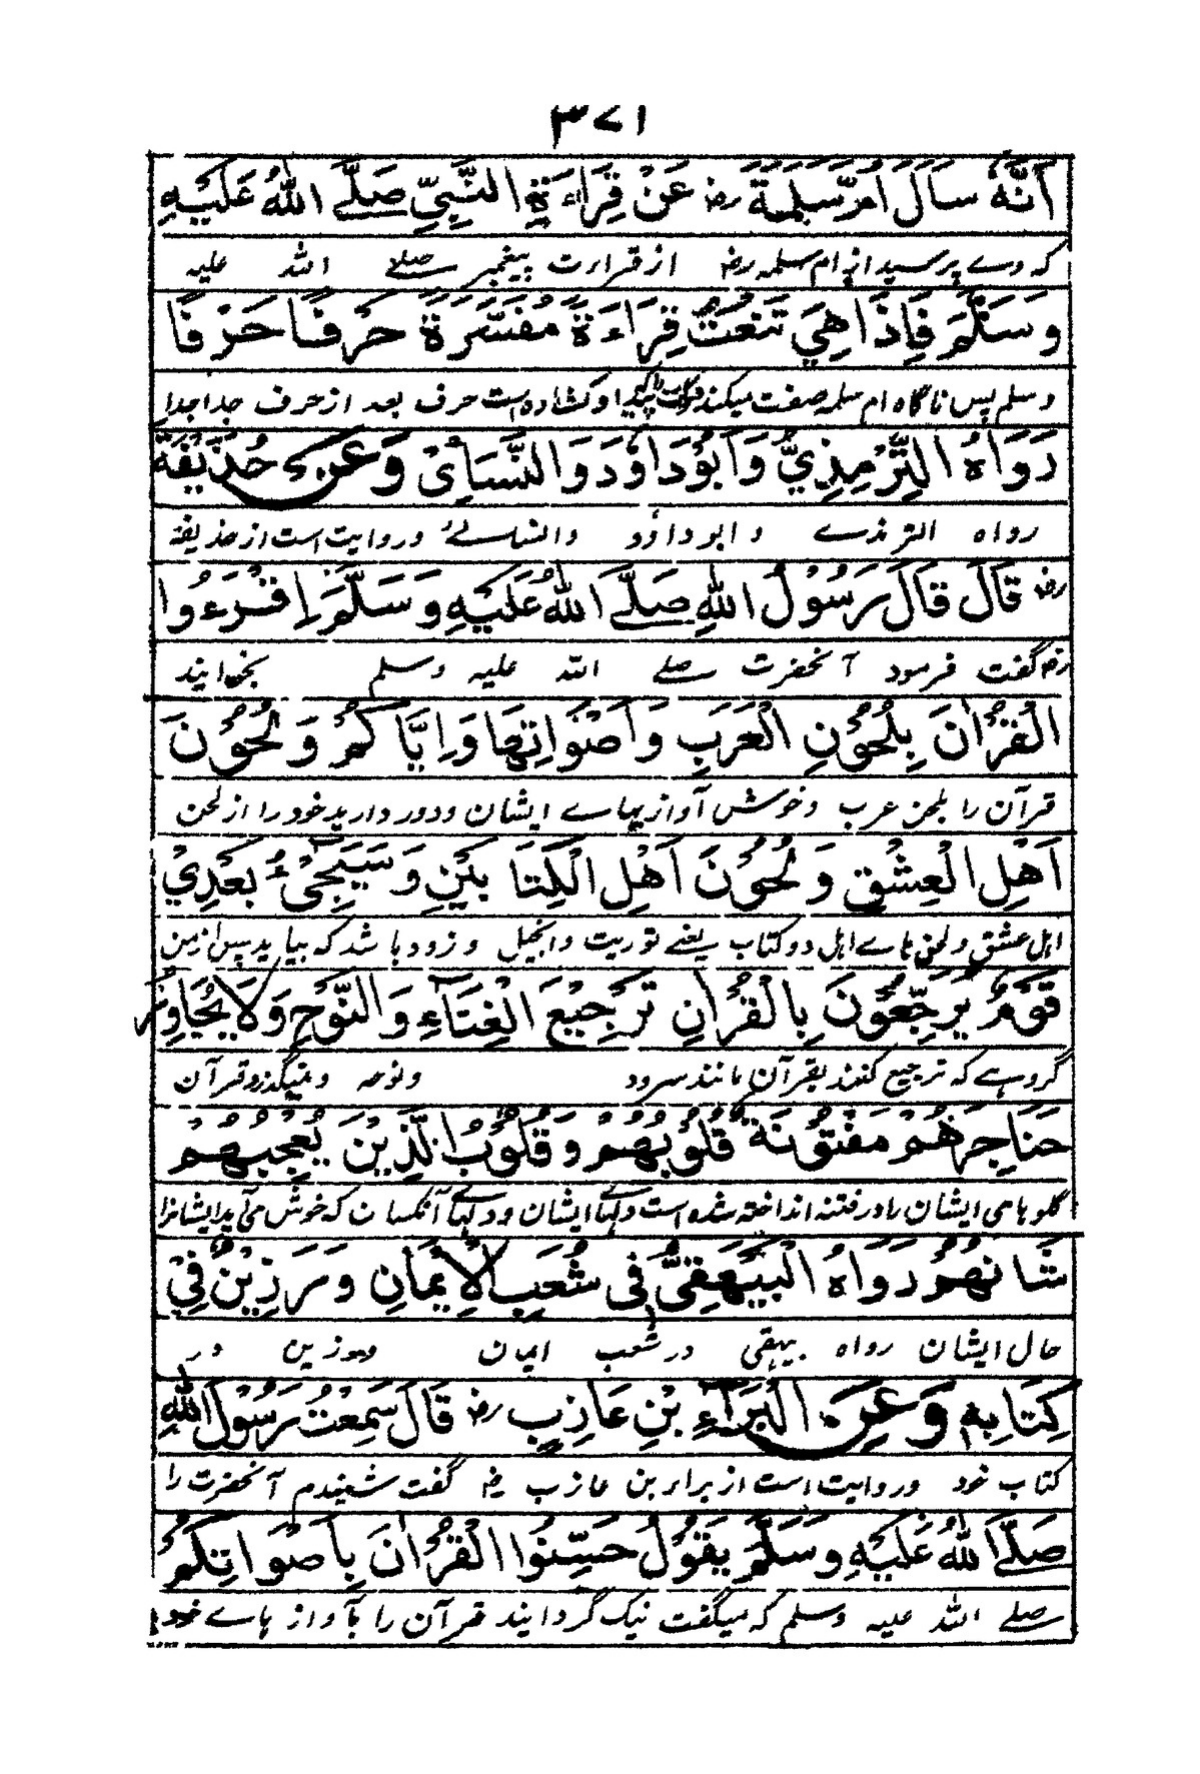 ٣٧١
أَنَّهُ سَأَلَ أُمَّ سَلَمَةَ رض عَنْ قِرَاءَةِ النَّبِيِّ صَلَّے اللهُ عَلَيْهِ
که وے پرسید از ام سلمه رض از قراءت پیغمبر صلے الله علیه
وَسَلَّمَ فَإِذَا هِيَ تَنْعَتُ قِرَاءَةً مُفَسَّرَةً حَرْفًا حَرْفًا
وسلم پس ناگاه ام سلمه صفت میکند او کشاده است حرف بعد از حرف جدا جدا
رَوَاهُ التِّرْمِذِيُّ وَأَبُوْدَاؤُدَ وَالنَّسَائِیُ وَعَنْ حُذَيْفَةَ
رواه الترمذے و ابوداؤد والنسائے وروایت است از حذیفة
رض قَالَ قَالَ رَسُوْلُ اللهِ صَلَّے اللهُ عَلَيْهِ وَسَلَّمَ اِقْرَءُوا
رض گفت فرمود آنحضرت صلے الله علیه وسلم بخوانید
الْقُرْاٰنَ بِلُحُوْنِ الْعَرَبِ وَاَصْوَاتِهَا وَاِيَّاكُمْ وَلُحُوْنَ
قرآن را بلحن عرب وخوش آوازیہاے ایشان ودور دارید خود را از لحن
اَهْلِ الْعِشْقِ وَلُحُوْنَ اَهْلِ الْكِتَابَيْنِ وَسَيَجِیْءُ بَعْدِيْ
اہل عشق ولحن ہاے اہل دو کتاب یعنے توریت وانجیل وزود باشد که بیاید پس از من
قَوْمٌ يُرَجِّعُوْنَ بِالْقُرْاٰنِ تَرْجِيْعَ الْغِنَاءِ وَالنَّوْحِ وَلَا يُجَاوِزُ
گروہے که ترجیع کنند بقرآن مانند سرود ونوحه ونمیگذرد قرآن
حَنَاجِرَهُمْ مَفْتُوْنَةً قُلُوْبُهُمْ وَقُلُوْبُ الَّذِيْنَ يُعْجِبُهُمْ
گلوہای ایشان را در فتنه انداخته شده است دلہاے ایشان ودلہاے آنکسان که خوش می آید ایشانرا
شَانُهُمْ رَوَاهُ الْبَيْهَقِیُّ فِی شُعَبِ الْاِيْمَانِ وَرَزِيْنٌ فِيْ
حال ایشان رواه بیہقی در شعب ایمان ورزین در
كِتَابِهٖ وَعَنِ الْبَرَآءِ بْنِ عَازِبٍ رض قَالَ سَمِعْتُ رَسُوْلَ اللهِ
کتاب خود وروایت است از براء بن عازب رض گفت شنیدم آنحضرت را
صَلَّے اللهُ عَلَيْهِ وَسَلَّمَ يَقُوْلُ حَسِّنُوا الْقُرْاٰنَ بِاَصْوَاتِكُمْ
صلے الله علیه وسلم که میگفت نیک گردانید قرآن را بآواز ہاے خود